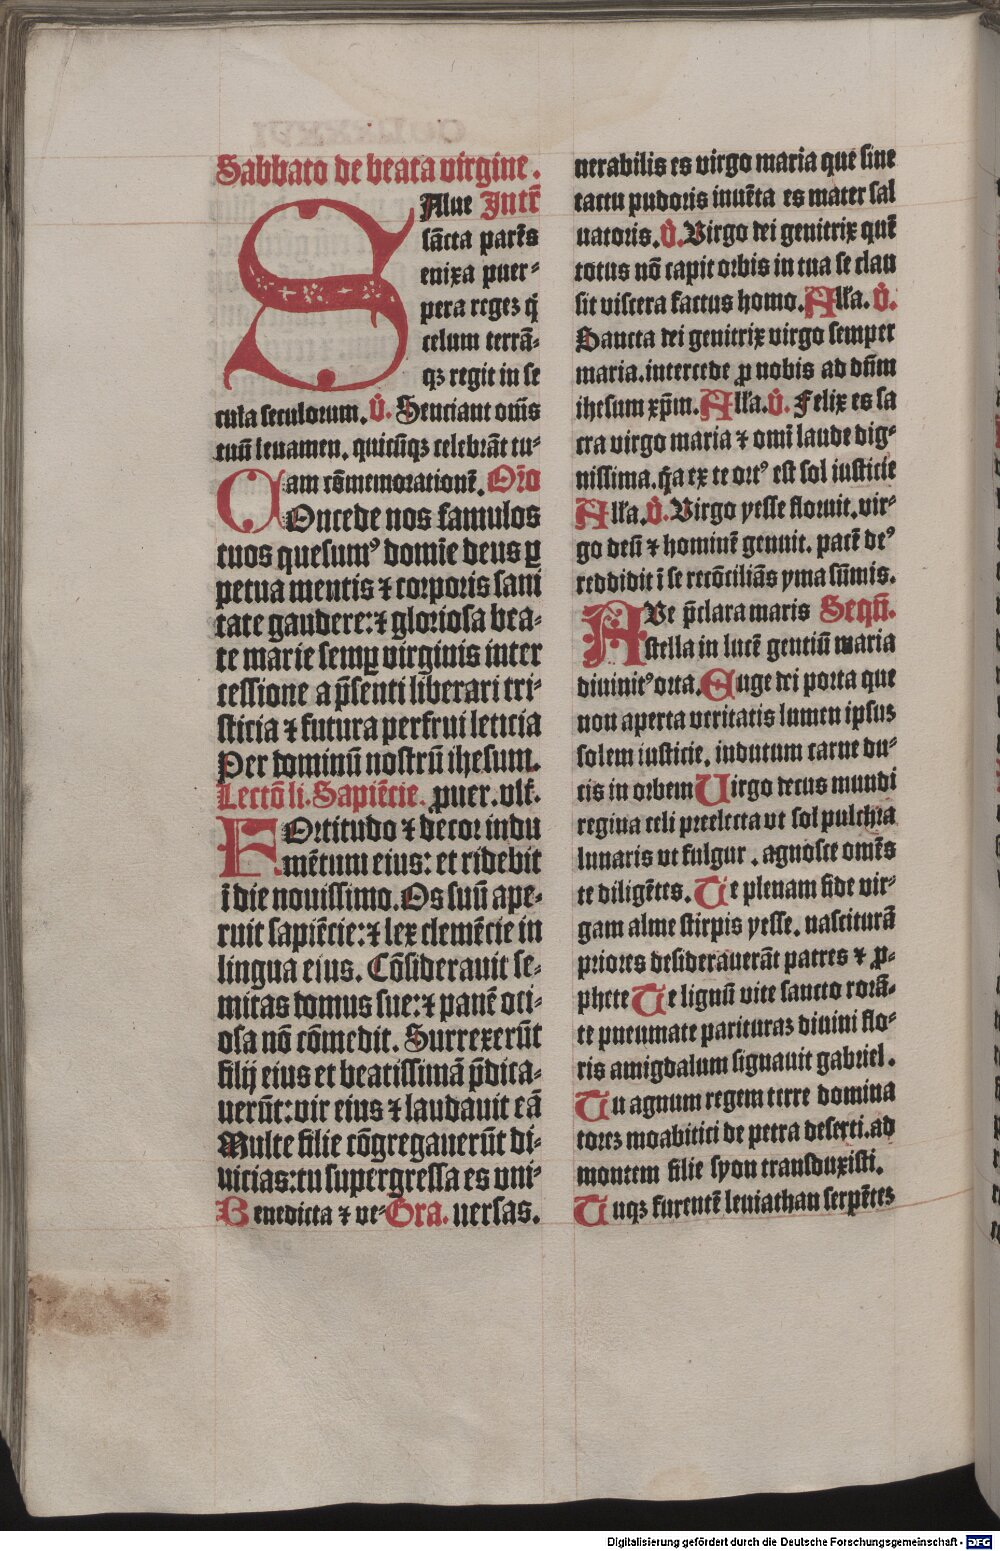 Sabbato de beata virgine.
SAlue Intr̄
sācta parēs
enixa puer⸗
pera regeꝫ q̇
celum terrā⸗
qꝫ regit in se
cula seculorum. V̇. Senciant om̄s
tuū leuamen. quicūqꝫ celebrāt tu⸗
am cōmemorationē. Or̄o
COncede nos famulos
tuos quesumꝰ domīe deus ꝑ
petua mentis ⁊ corporis sani
tate gaudere:⁊ gloriosa bea⸗
te marie semꝑ virginis inter
cessione a p̄senti liberari tri⸗
sticia ⁊ futura perfrui leticia
Per dominū nostrū ihesum.
Lectō li. Sapiēcie. ꝓuer. vlt̄.
FOrtitudo ⁊ decor indu
mētum eius: et ridebit
ī die nouissimo. Os suū ape⸗
ruit sapiēcie:⁊ lex clemēcie in
lingua eius. Cōsiderauit se⸗
mitas domus sue:⁊ panē oci⸗
osa nō cōmedit. Surrexerūt
filij eius et beatissimā p̄dica⸗
uerūt: vir eius ⁊ laudauit eā
Multe filie cōgregauerūt di⸗
uicias: tu supergressa es vni⸗
Benedicta ⁊ ve⸗ Gra. uersas.
nerabilis es virgo maria que sine
tactu pudoris inuēta es mater sal
uatoris. V̇. Virgo dei genitrix quē
totus nō capit orbis in tua se clau
sit viscera factus homo. Alľa. V̇.
Sancta dei genitrix virgo semper
maria. intercede ꝓ nobis ad dn̄m
ihesum xp̄m. Alľa. V̇. Felix es sa
cra virgo maria ⁊ omī laude dig⸗
nissima. q̄a ex te ortꝰ est sol iusticie
Alľa. V̇. Virgo yesse floruit. vir⸗
go deū ⁊ hominē genuit. pacē deꝰ
reddidit ī se recōciliās yma sūmis.
AVe p̄clara maris Seqū.
stella in lucē gentiū maria
diuinitꝰ orta. Euge dei porta que
non aperta veritatis lumen ipsuꝫ
solem iusticie. indutum carne du⸗
cis in orbem Uirgo decus mundi
regina celi preelecta vt sol pulchra
lunaris vt fulgur. agnosce omēs
te diligētes. Te plenam fide vir⸗
gam alme stirpis yesse. nasciturā
priores desiderauerāt patres ⁊ ꝓ⸗
phete Te lignū vite sancto rorā⸗
te pneumate parituraꝫ diuini flo⸗
ris amigdalum signauit gabriel.
Tu agnum regem terre domina
toreꝫ moabitici de petra deserti. ad
montem filie syon transduxisti.
Tuqꝫ furentē leuiathan serpēteꝫ
Digitalisierung gefördert durch die Deutsche Forschungsgemeinschaft - DFG